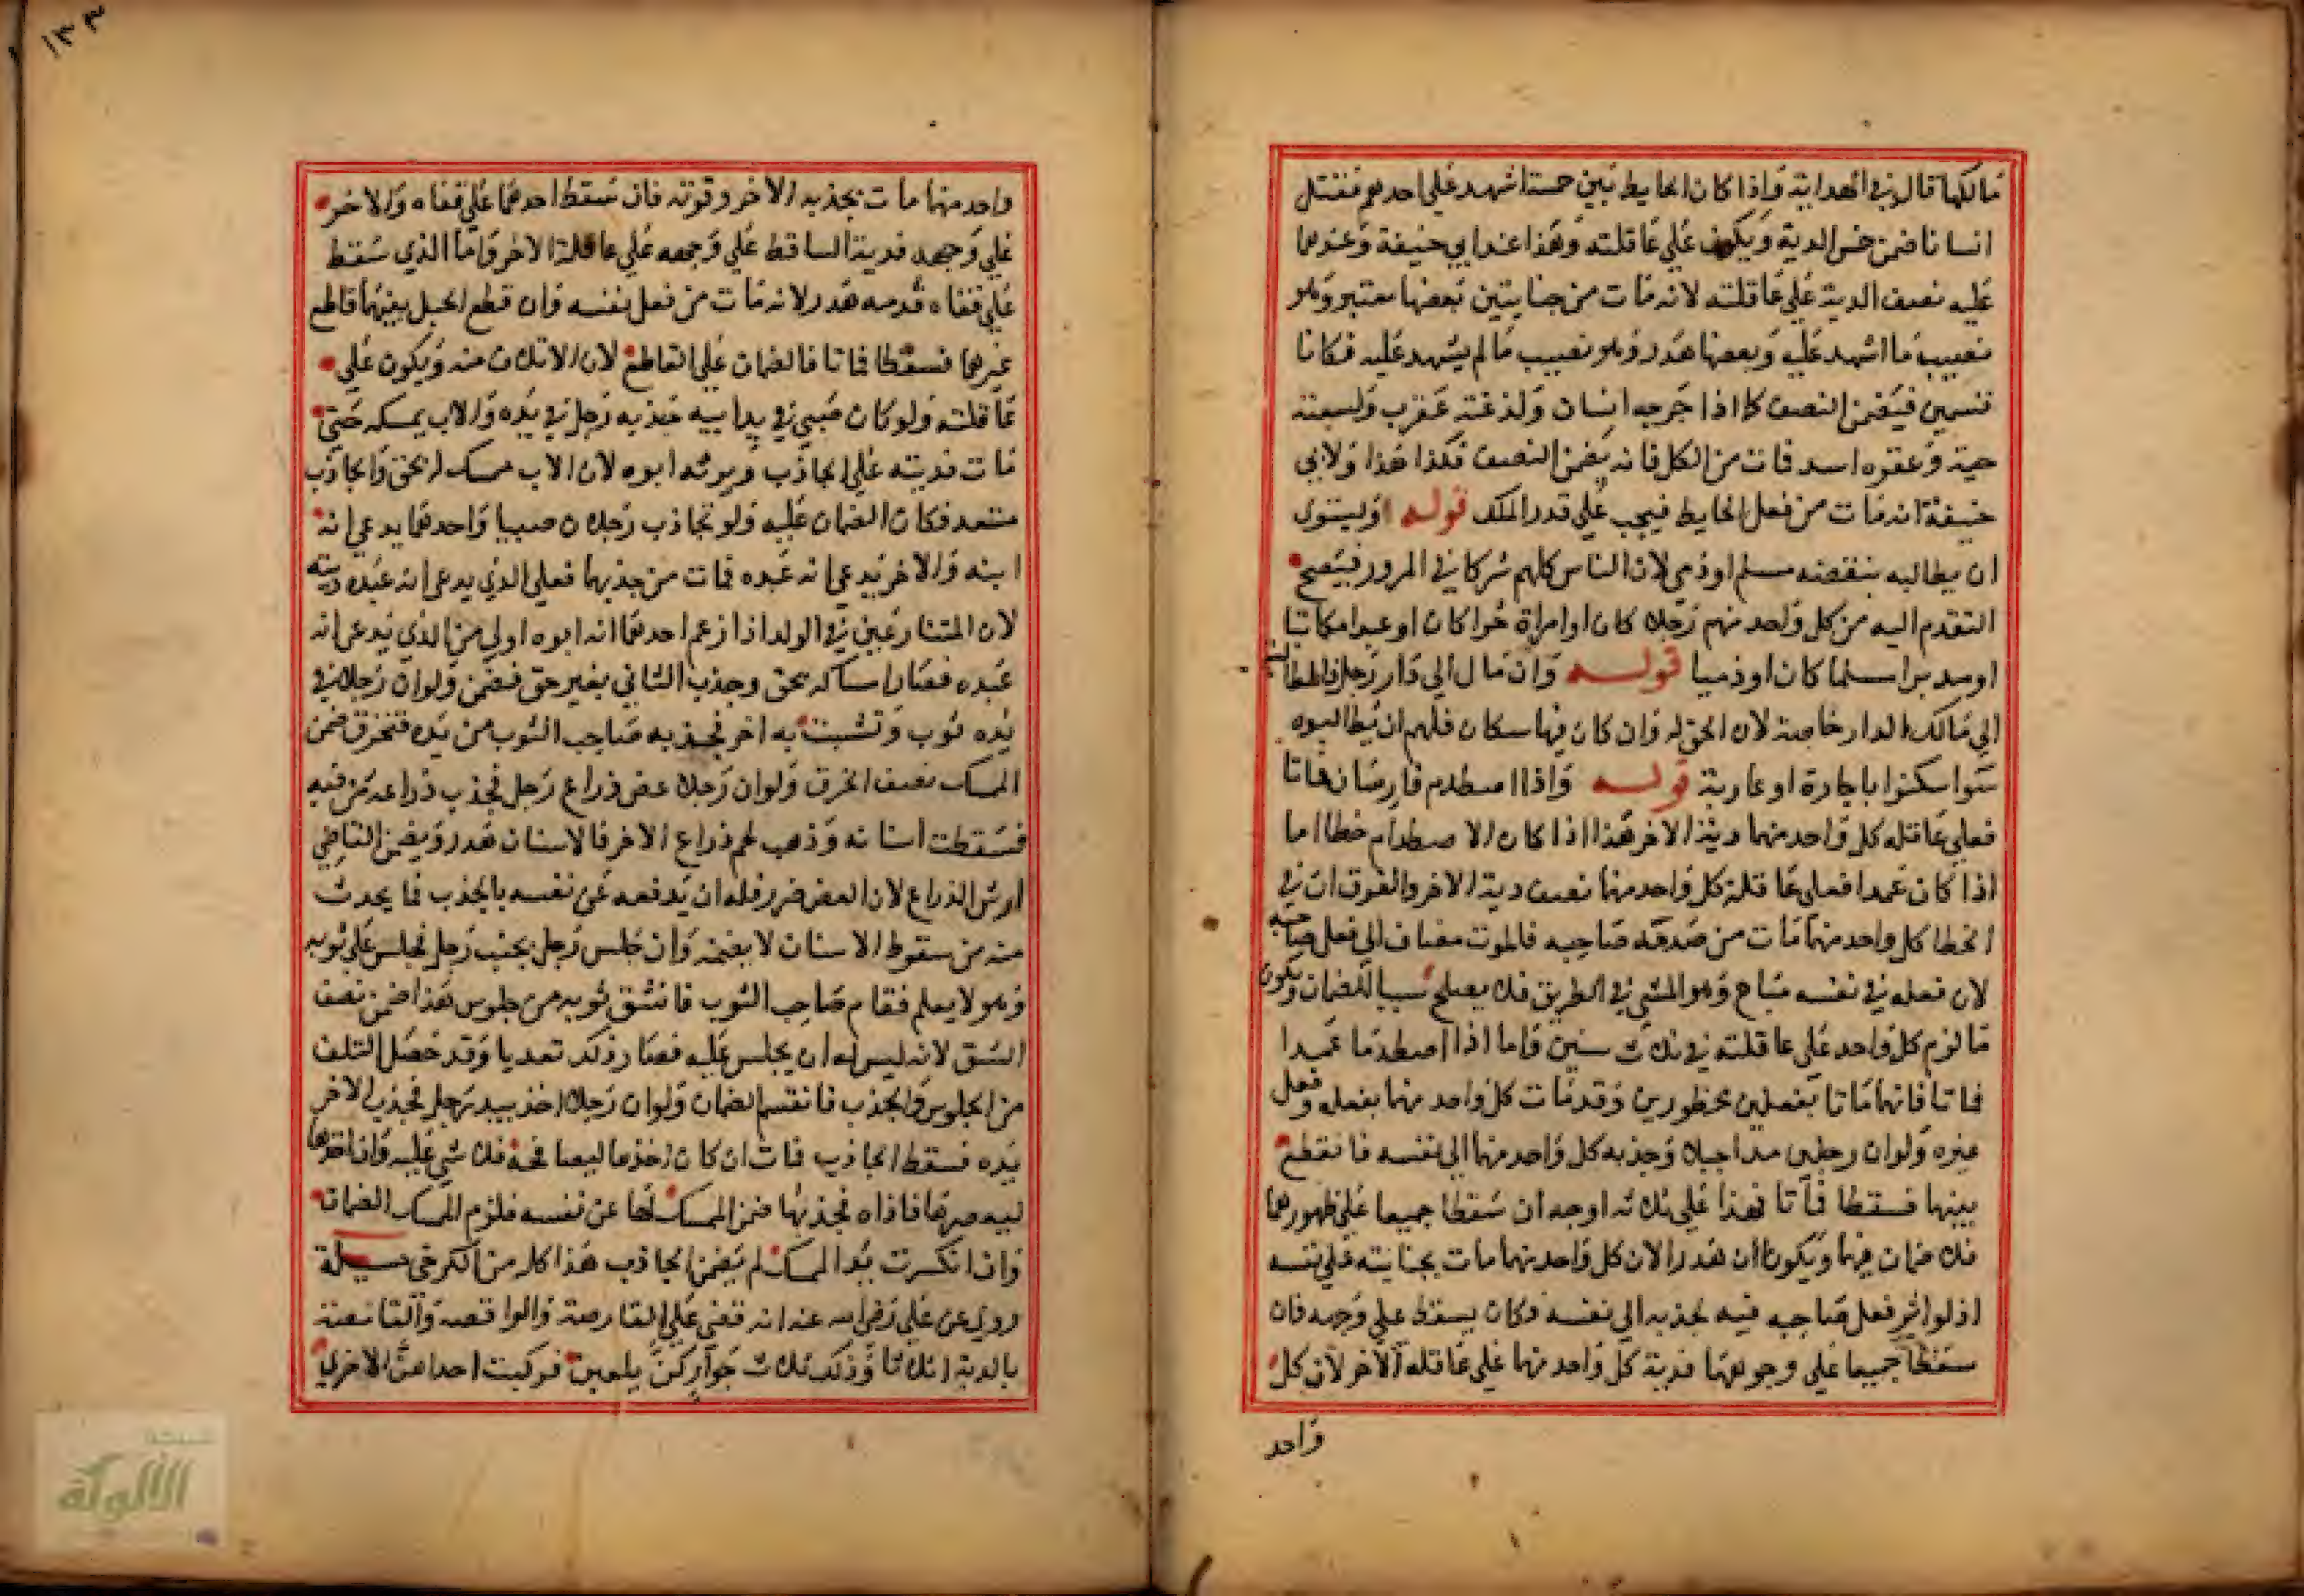 مالكها قال في الهداية واذا كان الحايط بين خمسة اشهد على احدهم فقتل
انسانا ضمن خمس الدية ويكون على عاقلته وهذا عند ابي حنيفة وعندهما
عليه نصف الدية على عاقلته لانه مات من جنايتين بعضها معتبر وهو
نصيب ما اشهد عليه وبعضها هدر وهو نصيب ما لم يشهد عليه فكانا
قسمين فيضمن النصف كما اذا جرحه انسان ولدغته عقرب ولسعته
حية وعقره اسد فمات من الكل فانه يضمن النصف فكذا هذا ولابي
حنيفة انه مات من فعل الحايط فيجب على قدر الملك قوله اوليستوى
ان يطالبه بنقضه مسلم او ذمي لان الناس كلهم شركا في المرور فيصح
التقدم اليه من كل واحد منهم رجلا كان او امراة حرا كان او عبدا مكاتبا
او مدبرا مسلما كان او ذميا قوله وان مال الى دار رجل فالمطالبة
الى مالك الدار خاصة لان الحق له وان كان فيها سكان فلهم ان يطالبوه
سوا سكنوا باجارة او عارية قوله واذا اصطدم فارسان فماتا
فعلى عاقلة كل واحد منهما دية الاخر هذا اذا كان الاصطدام خطا اما
اذا كان عمدا فعلى عاقلة كل واحد منهما نصف دية الاخر والفرق ان في
الخطا كل واحد منهما مات من صدمة صاحبه فالموت مضاف الى فعل صاحبه
لان فعله في نفسه مباح وهو المشي في الطريق فلا يصلح سببا للضمان ويكون
ما لزم كل واحد على عاقلته في ثلاث سنين واما اذا اصطدما عمدا
فماتا فانهما ماتا بفعلين محظورين وقد مات كل واحد منهما بفعله وفعل
غيره ولو ان رجلين مدا حبلا وجذبه كل واحد منهما الى نفسه فانقطع
بينهما فسقطا فماتا فهذا على ثلاثه اوجه ان سقطا جميعا على ظهورهما
فلا ضمان فيهما ويكونان هدرا لان كل واحد منهما مات بجنايته على نفسه
اذ لو اثر فعل صاحبه فيه لجذبه الى نفسه فكان يسقط على وجهه فان
سقطا جميعا على وجوههما فدية كل واحد منهما على عاقلة الاخر لان كل
واحد
١٣٣
واحد منهما مات بجذبه الاخر وقوته فان سقط احدهما على قفاه والاخر
على وجهه فدية الساقط على وجهه على عاقلة الاخر واما الذي سقط
على قفاه فدمه هدر لانه مات من فعل نفسه وان قطع الحبل بينهما قاطع
غيرهما فسقطا فماتا فالضمان على القاطع لان الاتلاف منه ويكون على
عاقلته ولو كان صبي في يد ابيه جذبه رجل في يده والاب يمسكه حتى
مات فديته على الجاذب ويرثه ابوه لان الاب ممسك له بحق والجاذب
متعد فكان الضمان عليه ولو تجاذب رجلان صبيا واحدهما يدعي انه
ابنه والاخر يدعي انه عبده فمات من جذبهما فعلى الذي يدعي انه عبده ديته
لان المتنازعين في الولد اذا زعم احدهما انه ابوه اولى من الذي يدعي انه
عبده فصار امساكه بحق وجذب الثاني بغير حق فضمن ولو ان رجلا في
يده ثوب وتشبث به اخر فجذبه صاحب الثوب من يده فتخرق ضمن
الممسك نصف الخرق ولو ان رجلا عض ذراع رجل فجذب ذراعه من فيه
فسقطت اسنانه وذهب لحم ذراع الاخر فالاسنان هدر ويضمن القاضي
ارش الذراع لان العض ضرر فله ان يدفعه عن نفسه بالجذب فما يحدث
منه من سقوط الاسنان لا يضمنه وان جلس رجل بجنب رجل فجلس على ثوبه
وهو لا يعلم فقام صاحب الثوب فانشق ثوبه من جلوس هذا ضمن نصف
الشق لانه ليس له ان يجلس عليه فصار ذلك تعديا وقد حصل التلف
من الجلوس والجذب فانقسم الضمان ولو ان رجلا اخذ بيد رجل فجذب الاخر
يده فسقط الجاذب فمات ان كان اخذها ليصافحه فلا شي عليه وان اخذها
ليعصرها فاذاه فجذبها ضمن الممسك لها عن نفسه فلزم الممسك الضمان
وان انكسرت يد الممسك لم يضمن الجاذب هذا كله من الكرخي مسيلة
روي عن علي رضي الله عنه انه قضى على القارصة والواقصة والقامصة
بالدية اثلاثا وذلك ثلاث جوار كن يلعبن فركبت احداهن الاخرى